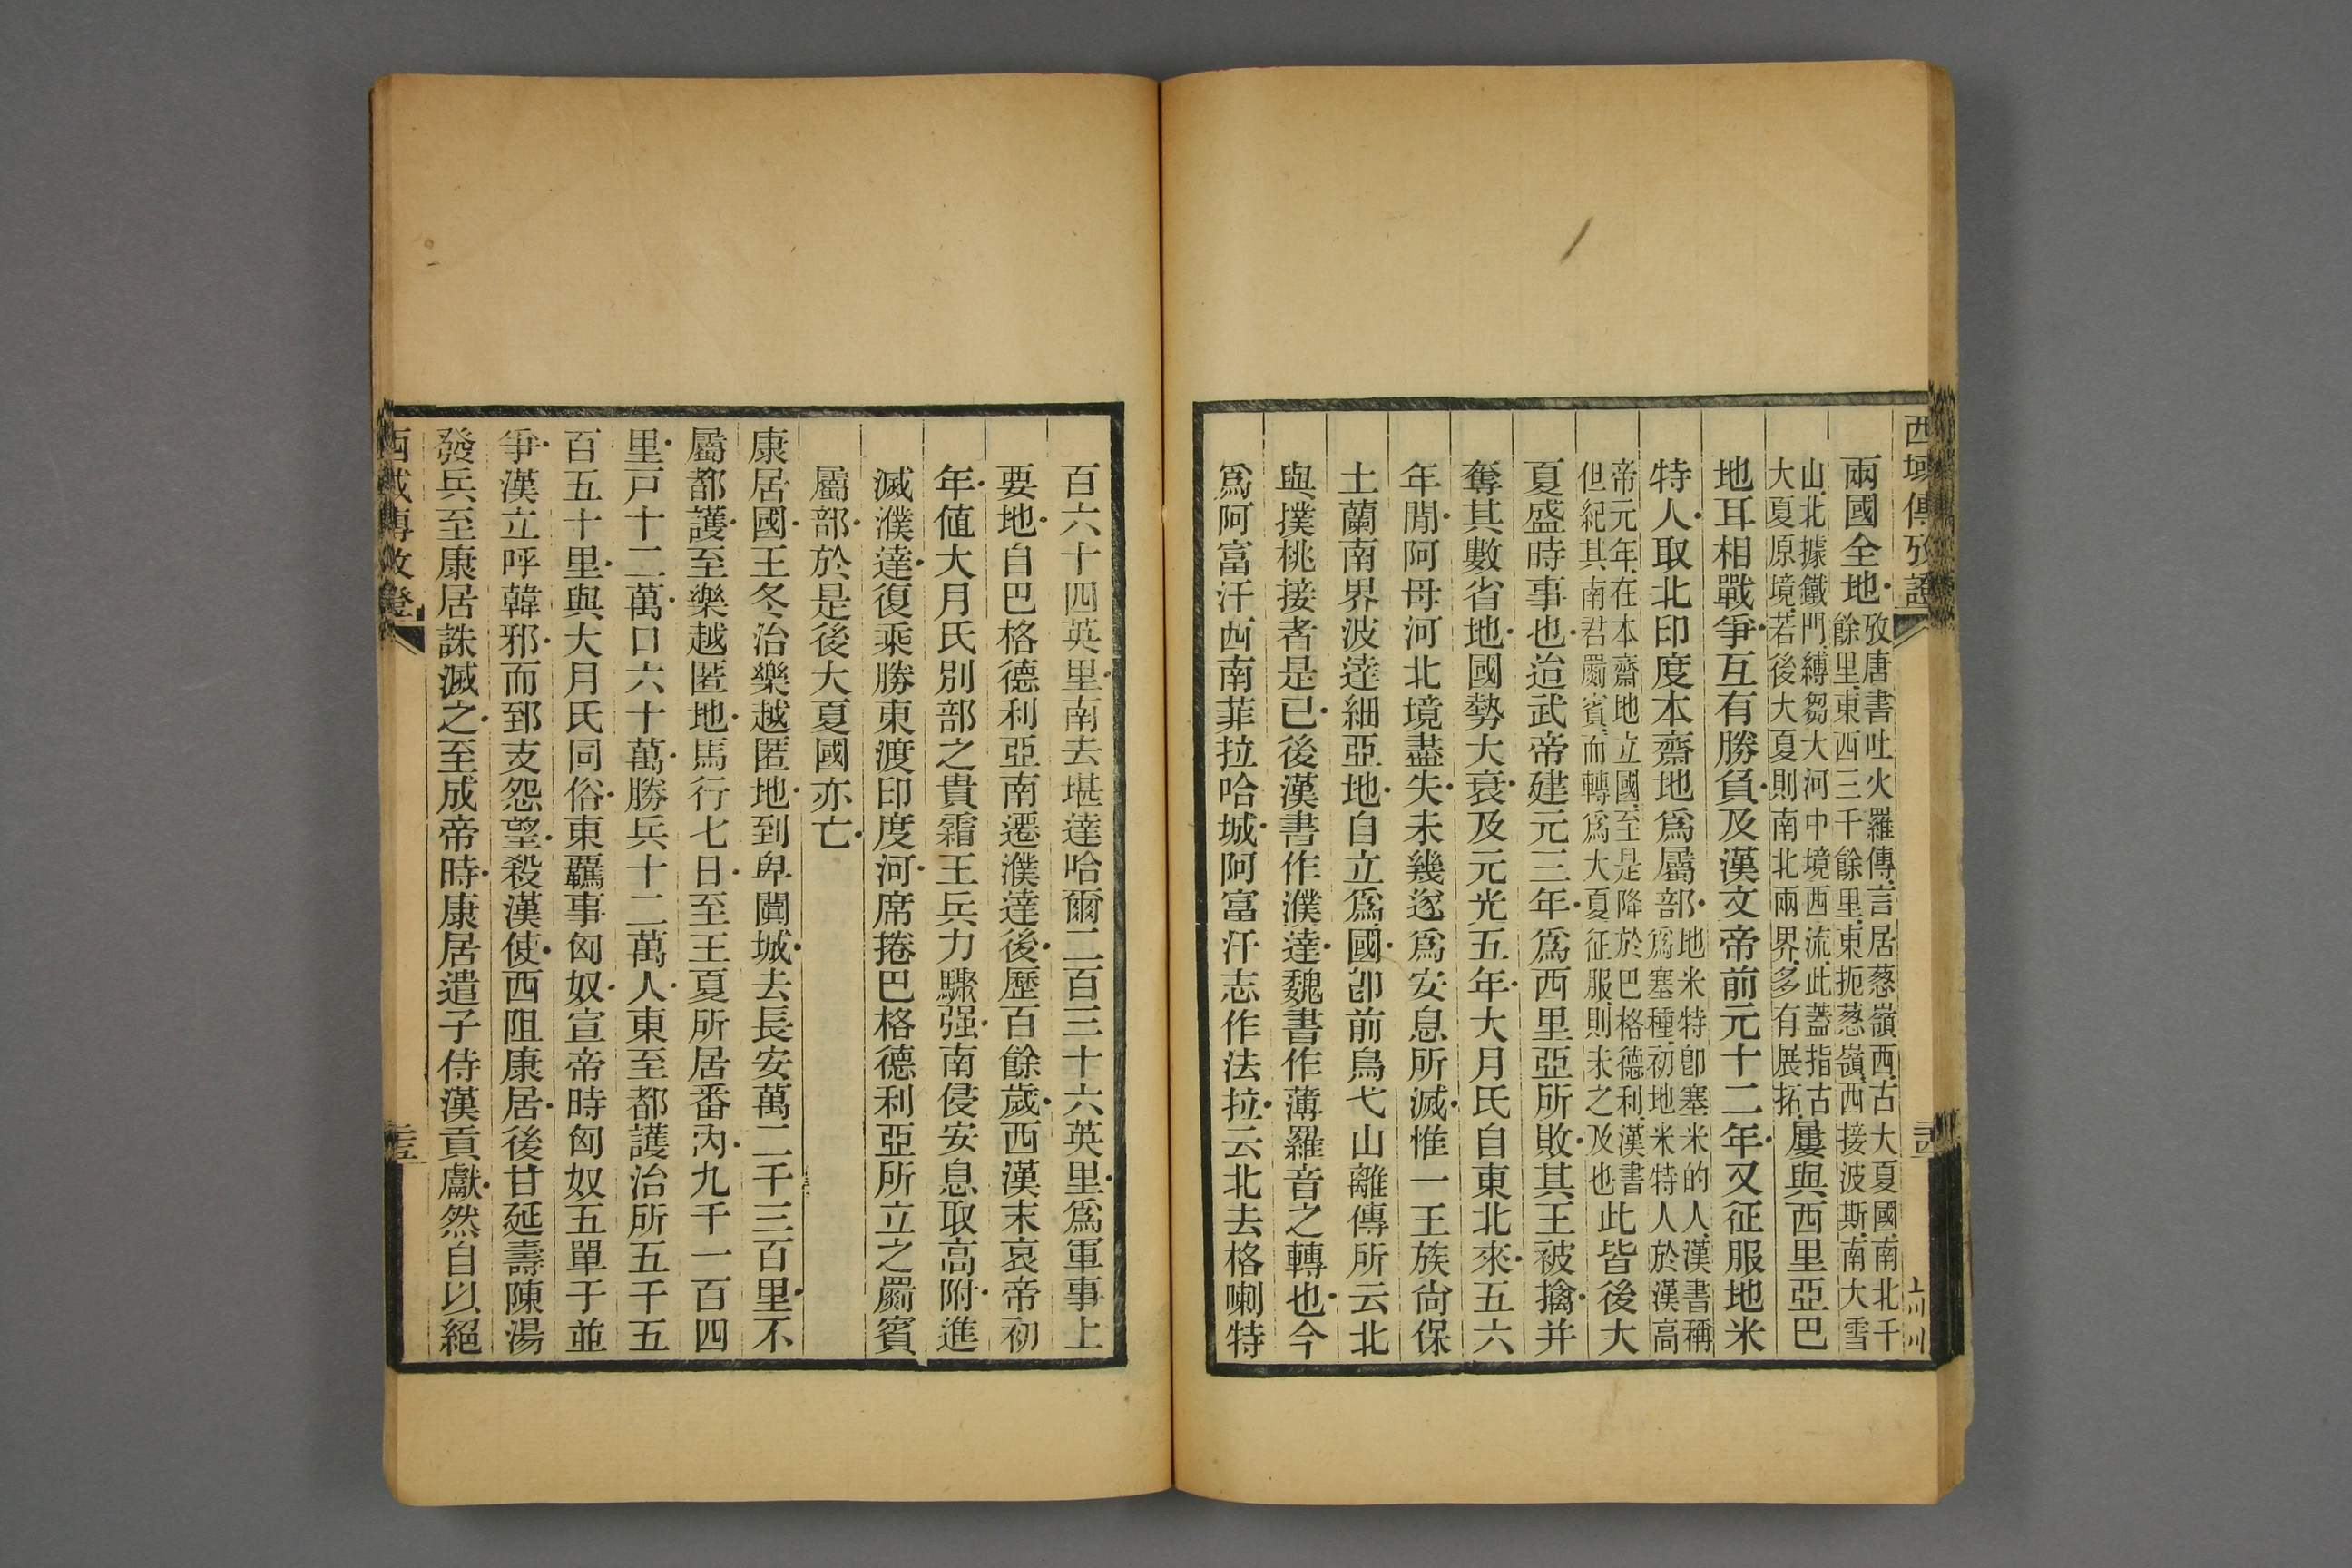 西域傳攷證
兩國全地攷唐書吐火羅傳言居葱嶺西古大夏國南北千餘里東西三千餘里東扼葱嶺西接波斯南大雪
山北據鐵門縛芻大河中境西流此蓋指古大夏原境若後大夏則南北兩界多有展拓屢與西里亞巴
地耳相戰爭互有勝負及漢文帝前元十二年又征服地米
特人取北印度本齋地爲屬部地米特卽塞米的人漢書稱爲塞種初地米特人於漢高
帝元年在本齋地立國至是降於巴格德利漢書但紀其南君罽賓而轉爲大夏征服則未之及也此皆後大
夏盛時事也迨武帝建元三年爲西里亞所敗其王被擒并
奪其數省地國勢大衰及元光五年大月氏自東北來五六
年閒阿母河北境盡失未幾遂爲安息所滅惟一王族尙保
土蘭南界波達細亞地自立爲國卽前烏弋山離傳所云北
與撲桃接者是已後漢書作濮達魏書作薄羅音之轉也今
爲阿富汗西南菲拉哈城阿富汗志作法拉云北去格喇特
百六十四英里南去堪達哈爾二百三十六英里爲軍事上
要地自巴格德利亞南遷濮達後歷百餘歲西漢末哀帝初
年値大月氏別部之貴霜王兵力驟强南侵安息取高附進
滅濮達復乘勝東渡印度河席捲巴格德利亞所立之罽賓
屬部於是後大夏國亦亡
康居國王冬治樂越匿地到卑闐城去長安萬二千三百里不
屬都護至樂越匿地馬行七日至王夏所居番內九千一百四
里戸十二萬口六十萬勝兵十二萬人東至都護治所五千五
百五十里與大月氏同俗東羈事匈奴宣帝時匈奴五單于並
爭漢立呼韓邪而郅支怨望殺漢使西阻康居後甘延壽陳湯
發兵至康居誅滅之至成帝時康居遣子侍漢貢獻然自以絕
西域傳攷證